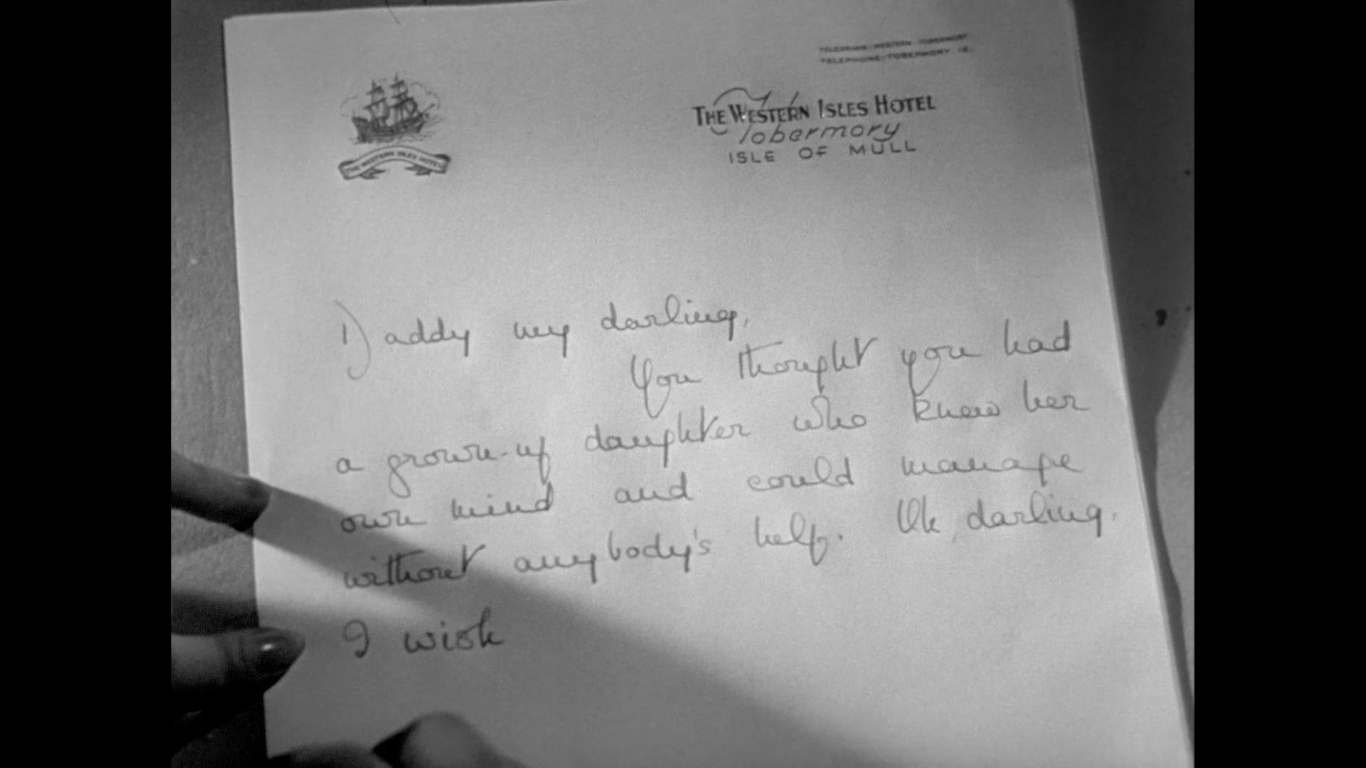 TELEGRAMS: WESTERN TOBERMORY
TELEPHONE: TOBERMORY 12.
THE WESTERN ISLES HOTEL
Tobermory
ISLE OF MULL
THE WESTERN ISLES HOTEL
Daddy my darling,
You thought you had
a grown-up daughter who knew her
own mind and could manage
without anybody's help. Oh, darling,
I wish